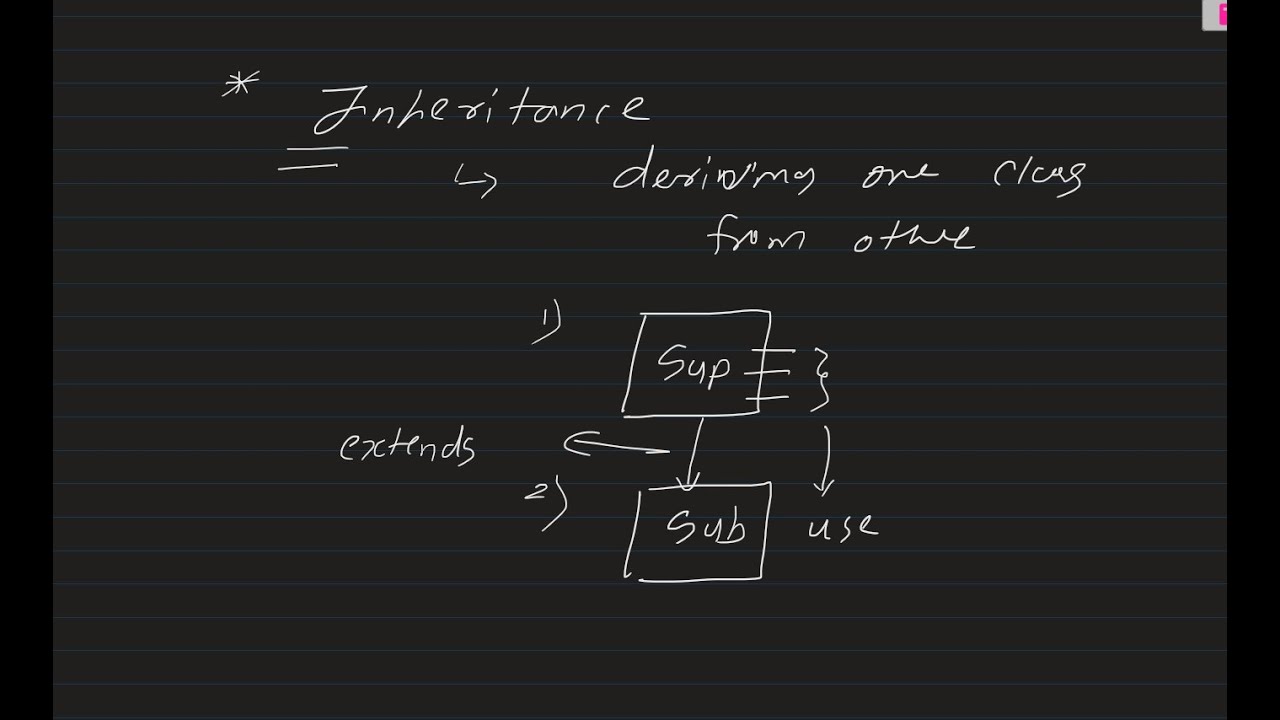 * Inheritance
↳ deriving one class
from othe
1)
Sup }
extends
2)
Sub use